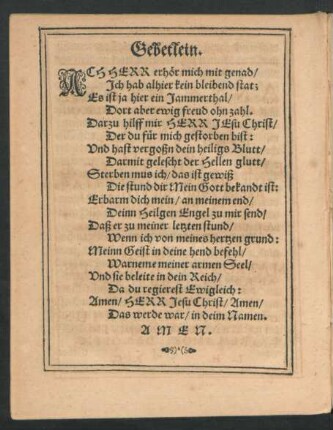 Gebetlein.
ACH HERR erhör mich mit genad/
Ich hab alhier kein bleibend stat;
Es ist ja hier ein Jammerthal/
Dort aber ewig freud ohn zahl.
Darzu hilff mir HERR JEsu Christ/
Der du für mich gestorben bist:
Vnd hast vergoßn dein heiligs Blutt/
Darmit gelescht der Hellen glutt/
Sterben mus ich/ das ist gewiß
Die stund dir Mein Gott bekandt ist:
Erbarm dich mein/ an meinem end/
Deinn Heilgen Engel zu mir send/
Daß er zu meiner letzten stund/
Wenn ich von meines hertzen grund:
Meinn Geist in deine hend befehl/
Warneme meiner armen Seel/
Vnd sie beleite in dein Reich/
Da du regierest Ewigleich:
Amen/ HERR Jesu Christ/ Amen/
Das werde war/ in deim Namen.
A M E N.